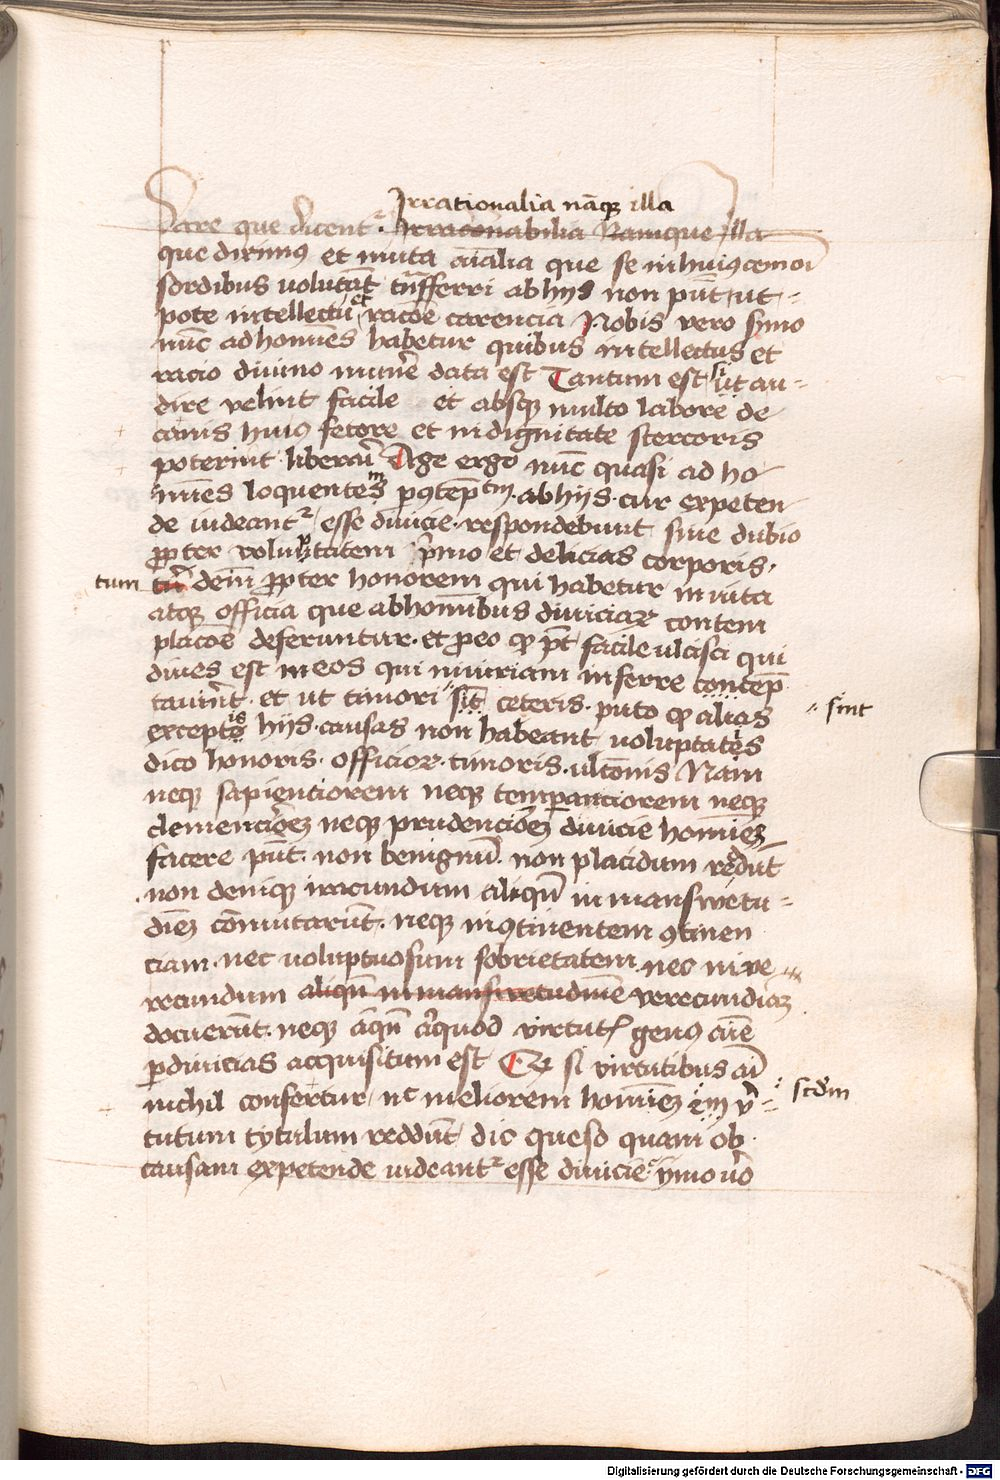 Irrationalia nāque illa
dare que dicent᷑. Irracōnabilia Namque illa
que diximus et muta aīalia que se in huiuscemōi
sordibus volutāt trāsferri ab hijs non pn̄t ut-
pote intellectu et racōe carencia Nobis vero ymo
nūc ad homīes habetur quibus intellectus et
racio divino munē data est Tantum est si ut au-
dire velint facile et absque multo labore de
canis huius fetore et indignitate stercoris
poterint liberari Age ergo nūc quasi ad ho
mīes loquentes ab hijs cur expeten
de videant᷑ esse divicie. respondebunt sine dubio
propter voluptatem primo et delicias corporis.
tum
deīn propter honorem qui habetur in vita
atque officia que ab homībus diviciar contem
placōe deferuntur. et pro eo quod pn̄t facile ulcisci qui
dives est in eos qui iniuriam inferre contēp
taverīt. et ut timori sīt ceteris. puto quod alias
sint
exceptis hijs causas non habeant voluptates
dico honoris. officior. timoris. ultōnis Nam
neque sapienciorem neque temperanciorem neque
clemencioreʒ neque prudencioreʒ divicie homīeʒ
facere pn̄t. non benignū. non placidum reddūt
non denique iracundum aliquē in manswetu-
dīeʒ cōmutarūt. neque incontinentem continen
ciam. nec voluptuosum sobrietatem. nec inve
recundum aliquē in manswetudinē verecundiaʒ
docuerūt. neque
per divicias acquisitum est Et si virtutibus
nichil confertur nec meliorem homīeʒ
scdm
tutum tytulum reddūt dic queso quam ob
causam expetende videant᷑ esse divicie ymo vo
Digitalisierung gefördert durch die Deutsche Forschungsgemeinschaft - DFG